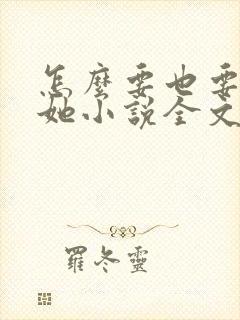 怎麼要也要
她小說全文
羅冬靈